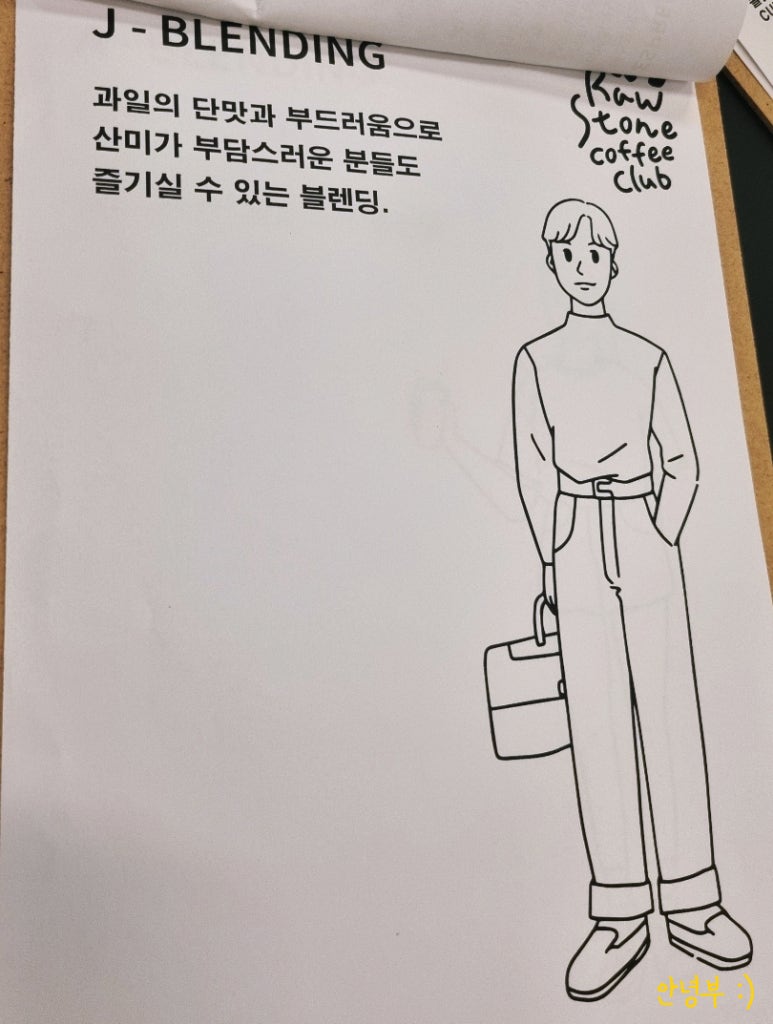 J - BLENDING
과일의 단맛과 부드러움으로
산미가 부담스러운 분들도
즐기실 수 있는 블렌딩.
Raw
Stone
coffee
club
안녕부 :)